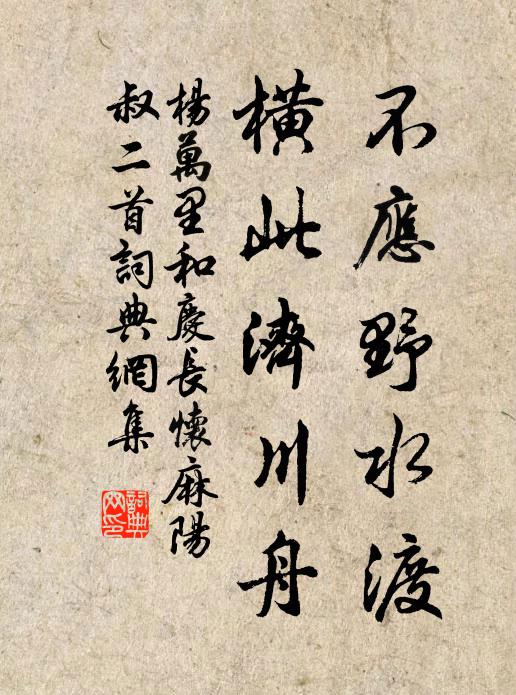 不應野水渡
橫此濟川舟
楊萬里和慶長懷麻陽
叔二首詞典網集
詞典
网印